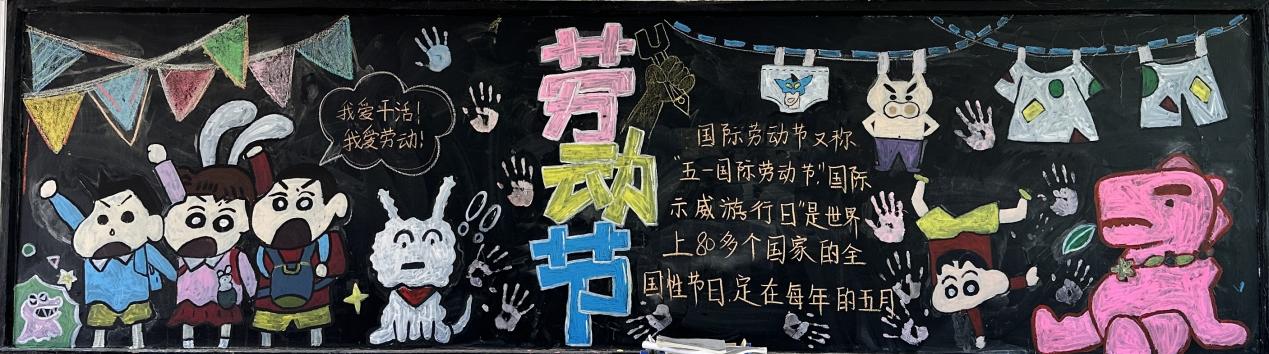 我爱干活！
我爱劳动！
劳动节
国际劳动节又称
“五一国际劳动节”“国际
示威游行日”是世界
上80多个国家的全
国性节日，定在每年的五月